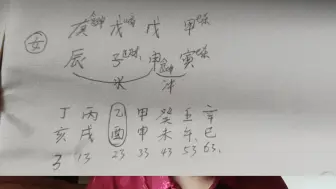 女 庚 戊 戊 甲
辰 子 申 寅
水 冲
丁 丙 乙 甲 癸 壬 辛
亥 戌 酉 申 未 午 巳
3 13 23 33 43 53 63